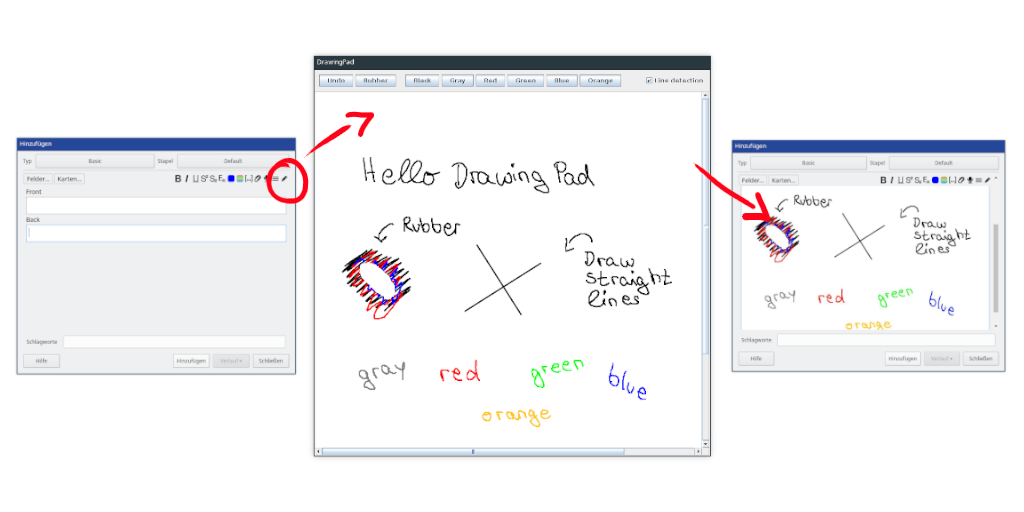 Hinzufügen
Typ Basic Stapel Default
Felder... Karten...
Front
Back
Schlagworte
Hilfe Hinzufügen Verlauf Schließen
DrawingPad
Undo Rubber Black Gray Red Green Blue Orange Line detection
Hello Drawing Pad
Rubber
Draw
straight
lines
gray red green blue
orange
Hinzufügen
Typ Basic Stapel Default
Felder... Karten...
Rubber
Draw
straight
lines
gray red green blue
orange
Schlagworte
Hilfe Hinzufügen Verlauf Schließen